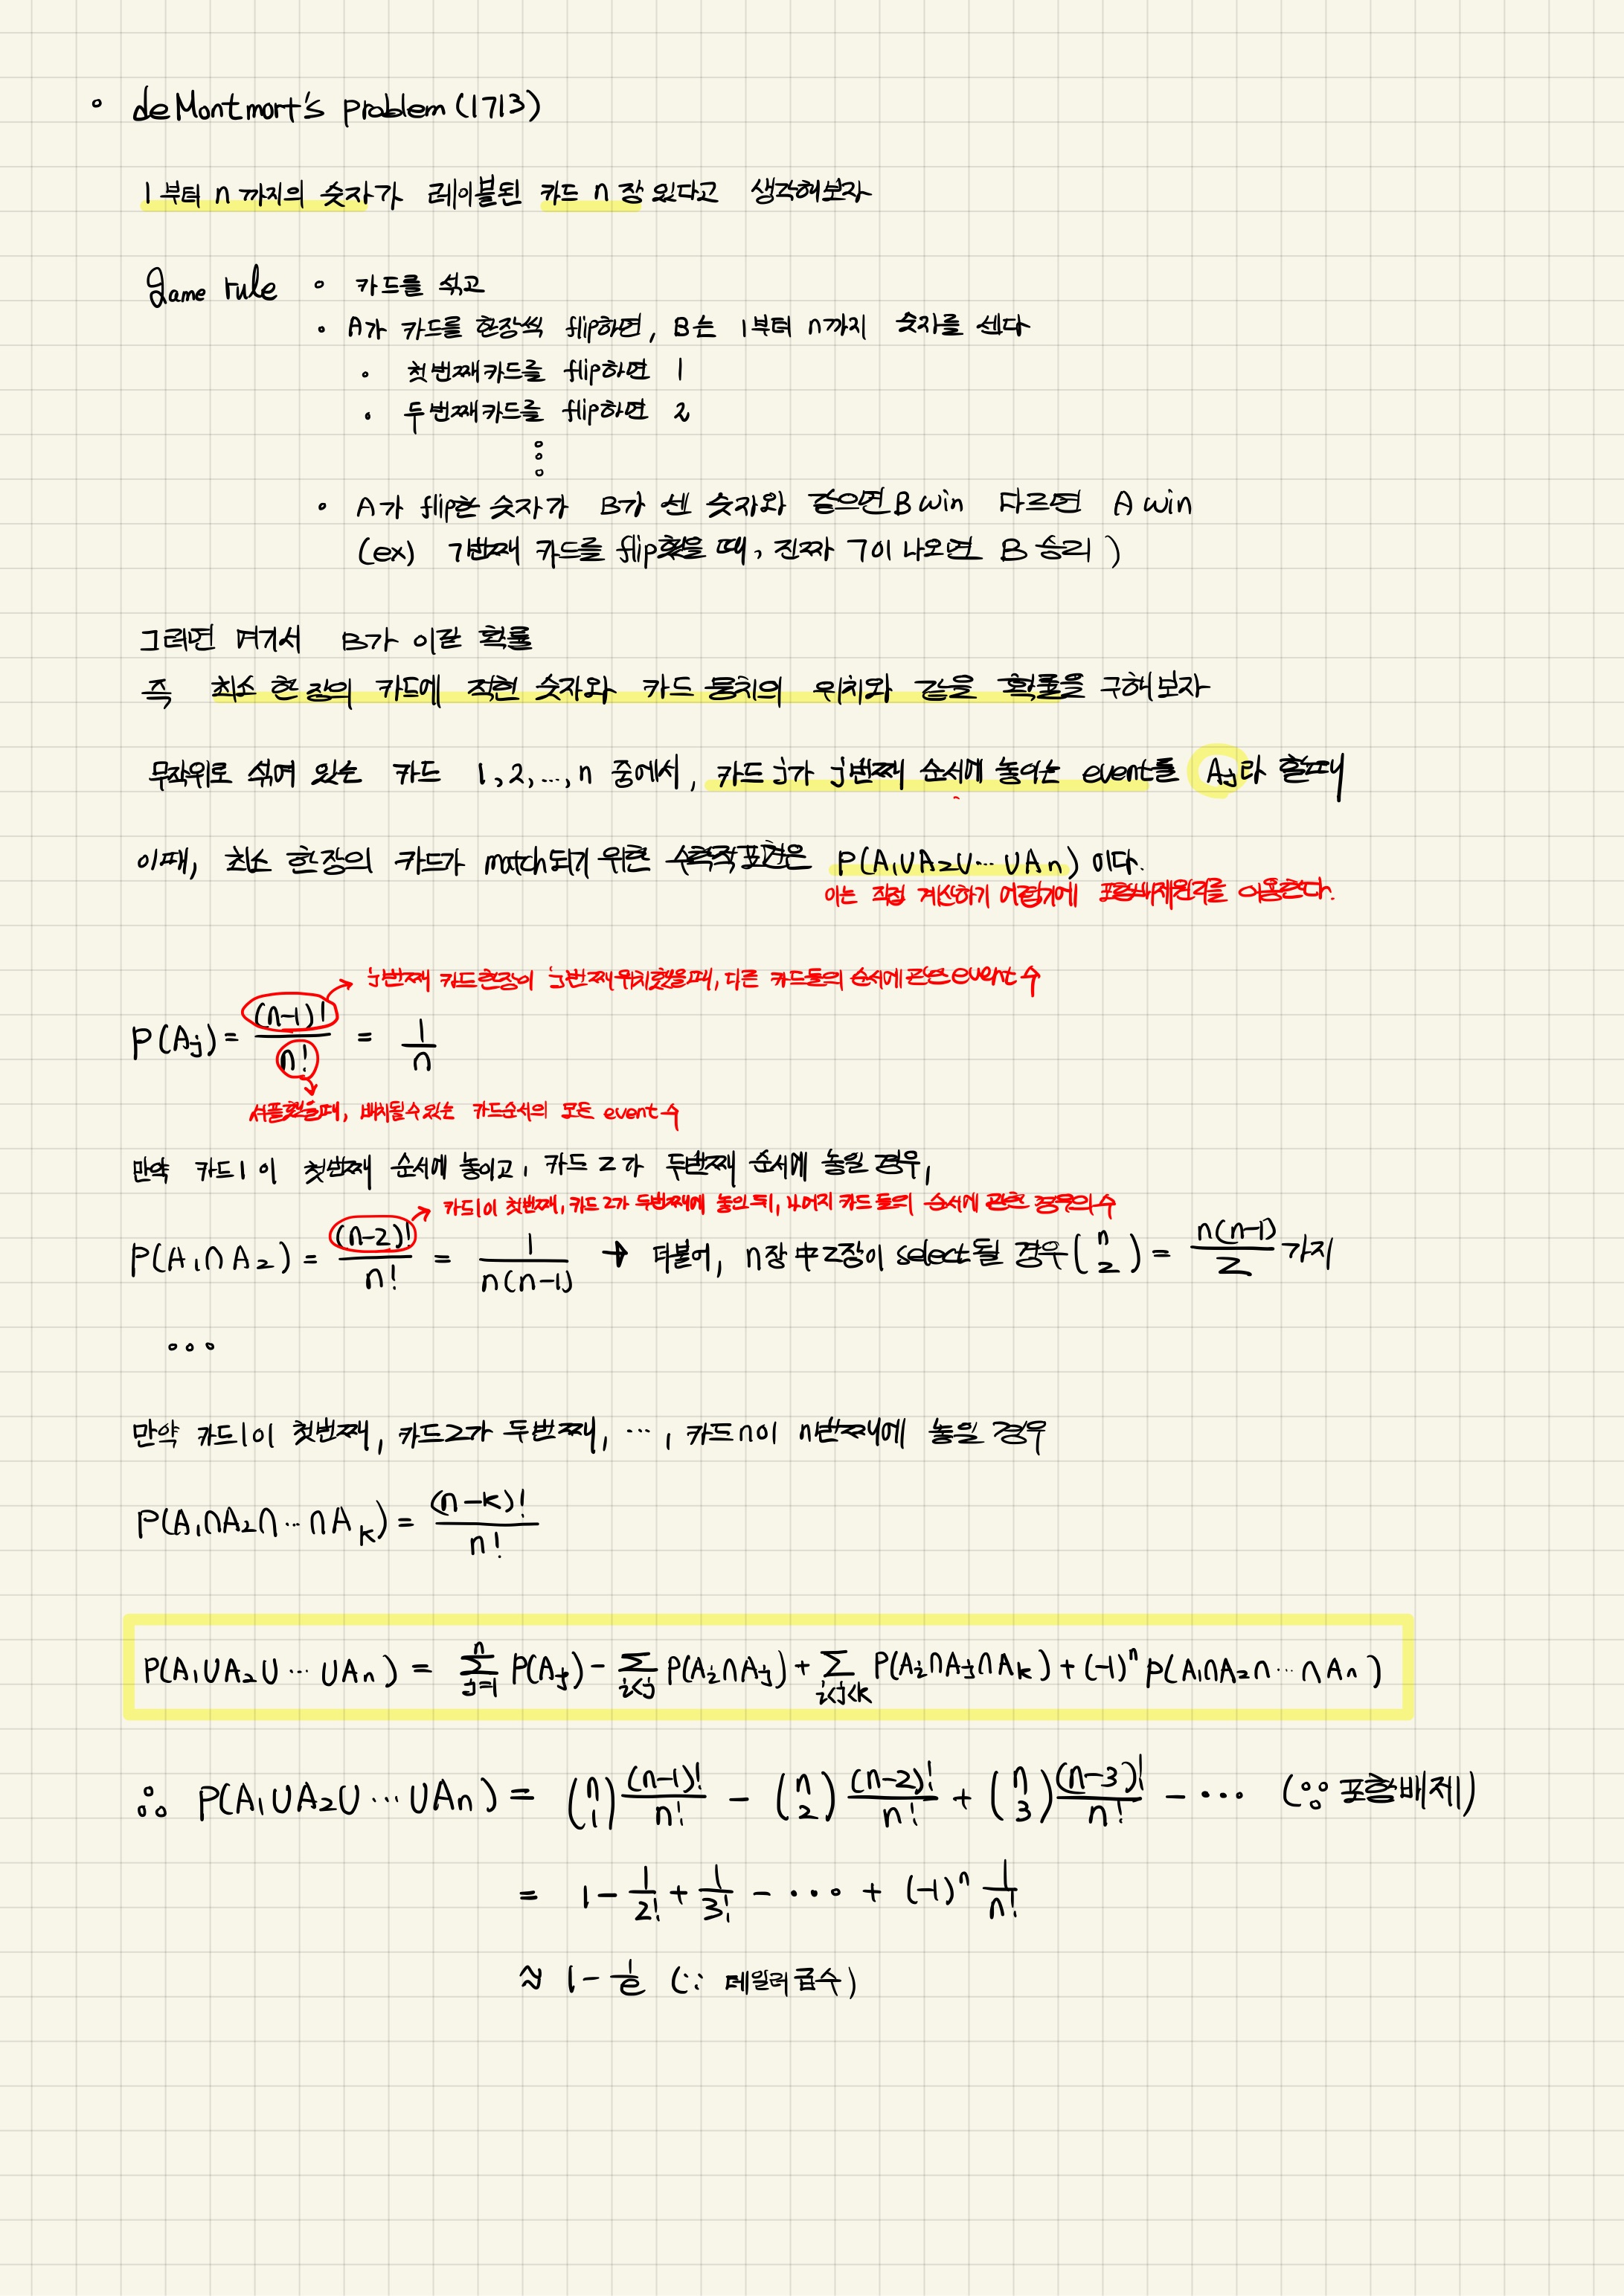 ◦ deMontmort's problem (1713)
1부터 n까지의 숫자가 레이블된 카드 n장 있다고 생각해보자
Game rule ◦ 카드를 섞고
◦ A가 카드를 한장씩 flip하면, B는 1부터 n까지 숫자를 센다
◦ 첫번째카드를 flip하면 1
◦ 두번째카드를 flip하면 2
⋮
◦ A가 flip한 숫자가 B가 센 숫자와 같으면 B win 다르면 A win
(ex) 7번째 카드를 flip했을 때, 진짜 7이 나오면 B 승리)
그러면 여기서 B가 이길 확률
즉 최소 한 장의 카드에 적힌 숫자와 카드 뭉치의 위치와 같을 확률을 구해보자
무작위로 섞여 있는 카드 1, 2, ..., n 중에서, 카드 j가 j번째 순서에 놓이는 event를 Aj라 할때
이때, 최소 한 장의 카드가 match되기 위한 수학적 표현은 P(A₁∪A₂∪⋯∪An) 이다.
이는 직접 계산하기 어렵기에 포함배제원리를 이용한다.
j번째 카드한장이 j번째 위치했을때, 다른 카드들의 순서에 관한 event 수
P(Aj) = (n-1)!/n! = 1/n
셔플했을때, 배치될수있는 카드순서의 모든 event 수
만약 카드1이 첫번째 순서에 놓이고, 카드 2가 두번째 순서에 놓일 경우,
카드1이 첫번째, 카드 2가 두번째에 놓인 뒤, 나머지 카드 들의 순서에 관한 경우의수
P(A₁∩A₂) = (n-2)!/n! = 1/n(n-1) → 더불어, n장 中 2장이 select될 경우 (n 2) = n(n-1)/2 가지
◦◦◦
만약 카드1이 첫번째, 카드2가 두번째, ⋯, 카드n이 n번째에 놓일 경우
P(A₁∩A₂∩⋯∩Ak) = (n-k)!/n!
P(A₁∪A₂∪⋯∪An) = ∑ⁿj=1 P(Aj) - ∑i<j P(Ai∩Aj) + ∑i<j<k P(Ai∩Aj∩Ak) + (-1)ⁿ P(A₁∩A₂∩⋯∩An)
∴ P(A₁∪A₂∪⋯∪An) = (n 1) (n-1)!/n! - (n 2) (n-2)!/n! + (n 3) (n-3)!/n! - ⋯ (∵ 포함배제)
= 1 - 1/2! + 1/3! - ⋯ + (-1)ⁿ 1/n!
≈ 1 - 1/e (∵ 테일러 급수)